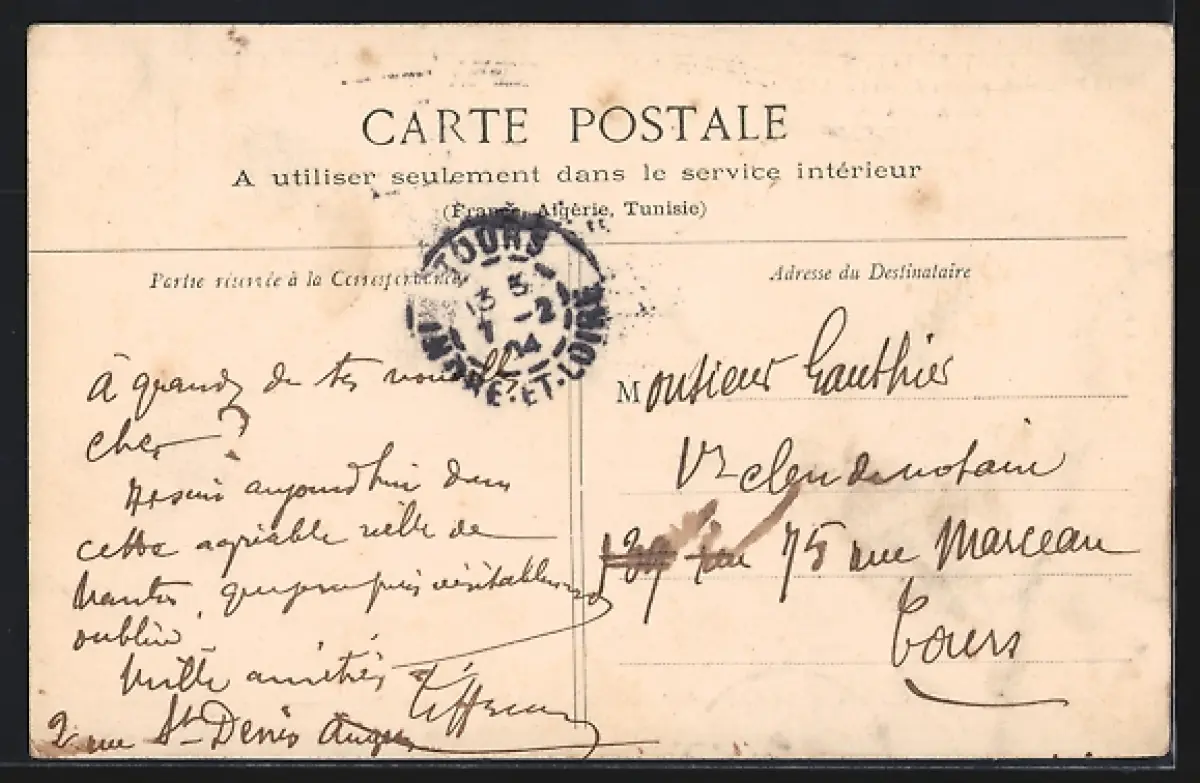 CARTE POSTALE
A utiliser seulement dans le service intérieur
(France, Algérie, Tunisie)
Partie réservée à la Correspondance
Adresse du Destinataire
TOURS
13 5
7 -2
04
INDRE-ET-LOIRE
à quand de tes nouvelles
cher ?
aujourd'hui dans
cette agréable ville de
Nantes, que je ne puis véritablement
oublier.
Mille amitiés
2 rue St Denis Angers
Monsieur Gauthier
clerc de notaire
139 rue 75 rue Marceau
Tours